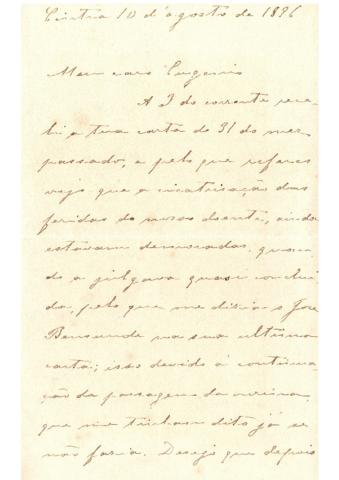 Cintra 10 d'agosto de 1896
Meu caro Eugenio
A 3 do corrente rece-
bi a tua carta de 31 do mez
passado, e pelo que referes
vejo que a cicatrisação das
feridas do nosso doente, ainda
estavam demoradas, quan-
do a julgava quasi conclui-
da, pelo que me dizia o José
na sua ultima
carta; isso devido á continua-
ção da passagem da ourina
que me tinham dito já se
não fazia. Desejo que depois